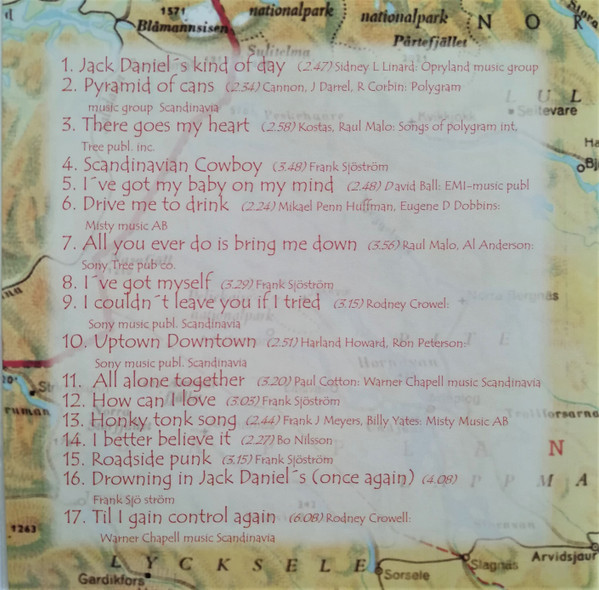 1571
Blåmannsisen
nationalpark
nationalpark
Pårtefjället
Sulitelma
N O R
L U L
Seitevare
1. Jack Daniel´s kind of day (2.47) Sidney L Linard: Opryland music group
2. Pyramid of cans (2.34) Cannon, J Darrel, R Corbin: Polygram
music group Scandinavia
3. There goes my heart (2.58) Kostas, Raul Malo: Songs of polygram int.
Tree publ. inc.
4. Scandinavian Cowboy (3.48) Frank Sjöström
5. I´ve got my baby on my mind (2.48) David Ball: EMI-music publ
6. Drive me to drink (2.24) Mikael Penn Huffman, Eugene D Dobbins:
Misty music AB
7. All you ever do is bring me down (3.56) Raul Malo, Al Anderson:
Sony Tree pub co.
8. I´ve got myself (3.29) Frank Sjöström
9. I couldn´t leave you if I tried (3.15) Rodney Crowel:
Sony music publ. Scandinavia
10. Uptown Downtown (2.51) Harland Howard, Ron Peterson:
Sony music publ. Scandinavia
11. All alone together (3.20) Paul Cotton: Warner Chapell music Scandinavia
12. How can I love (3.03) Frank Sjöström
13. Honky tonk song (2.44) Frank J Meyers, Billy Yates: Misty Music AB
14. I better believe it (2.27) Bo Nilsson
15. Roadside punk (3.15) Frank Sjöström
16. Drowning in Jack Daniel´s (once again) (4.08)
Frank Sjö ström
17. Til I gain control again (6.08) Rodney Crowell:
Warner Chapell music Scandinavia
nationalpark
P I T E
L A N
P P M A
1263
L Y C K S E L E
Gardikfors
Sorsele
Slagnäs
Arvidsjaur